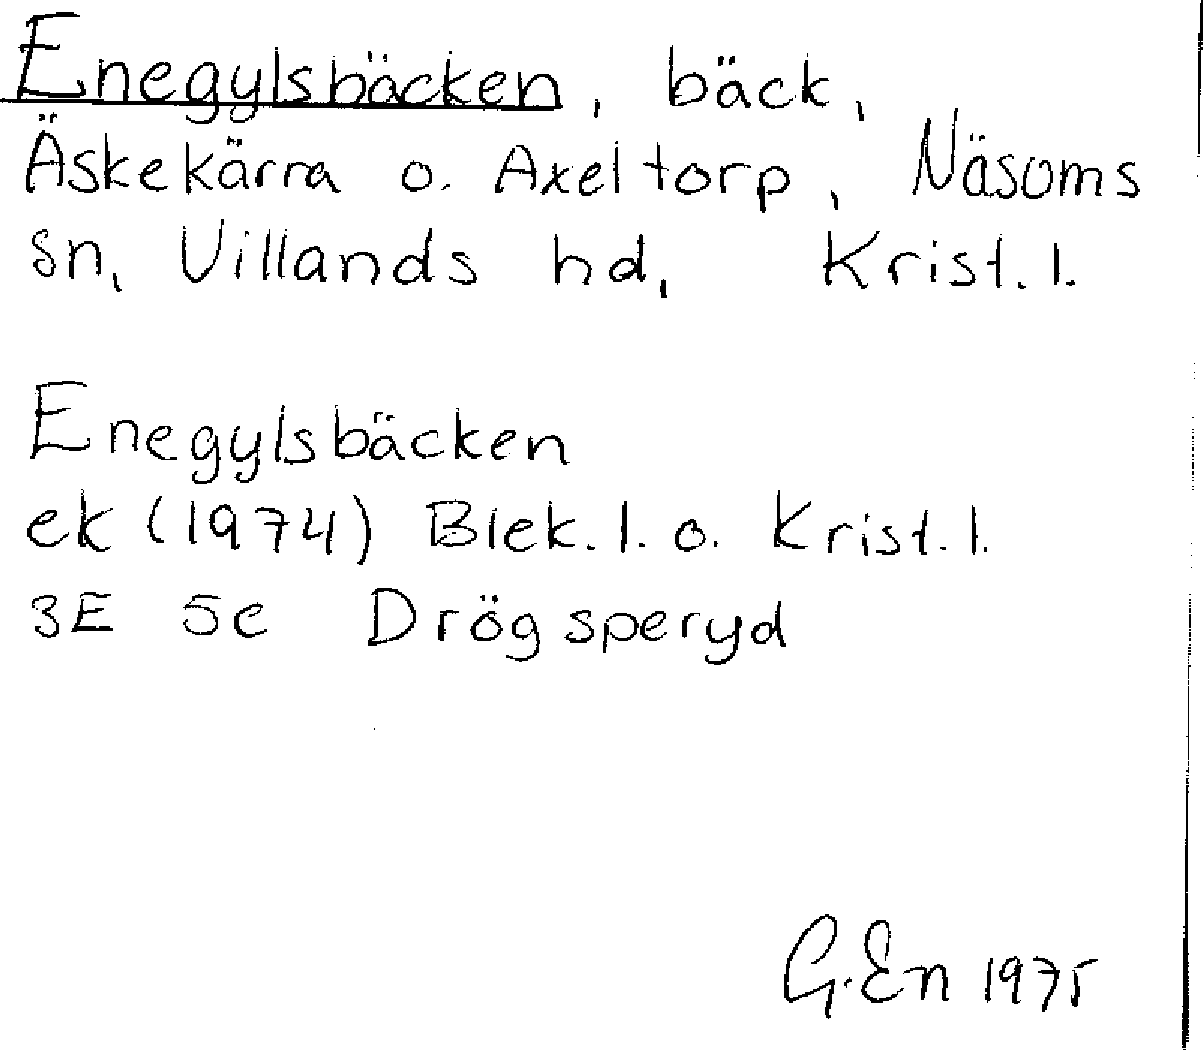 Enegylsbäcken, bäck,
Äskekärra o. Axeltorp, Näsoms
sn, Villands hd, Krist. l.
Enegylsbäcken
ek (1974) Blek. l. o. Krist. l.
3E 5e Drögsperyd
G.En 1975